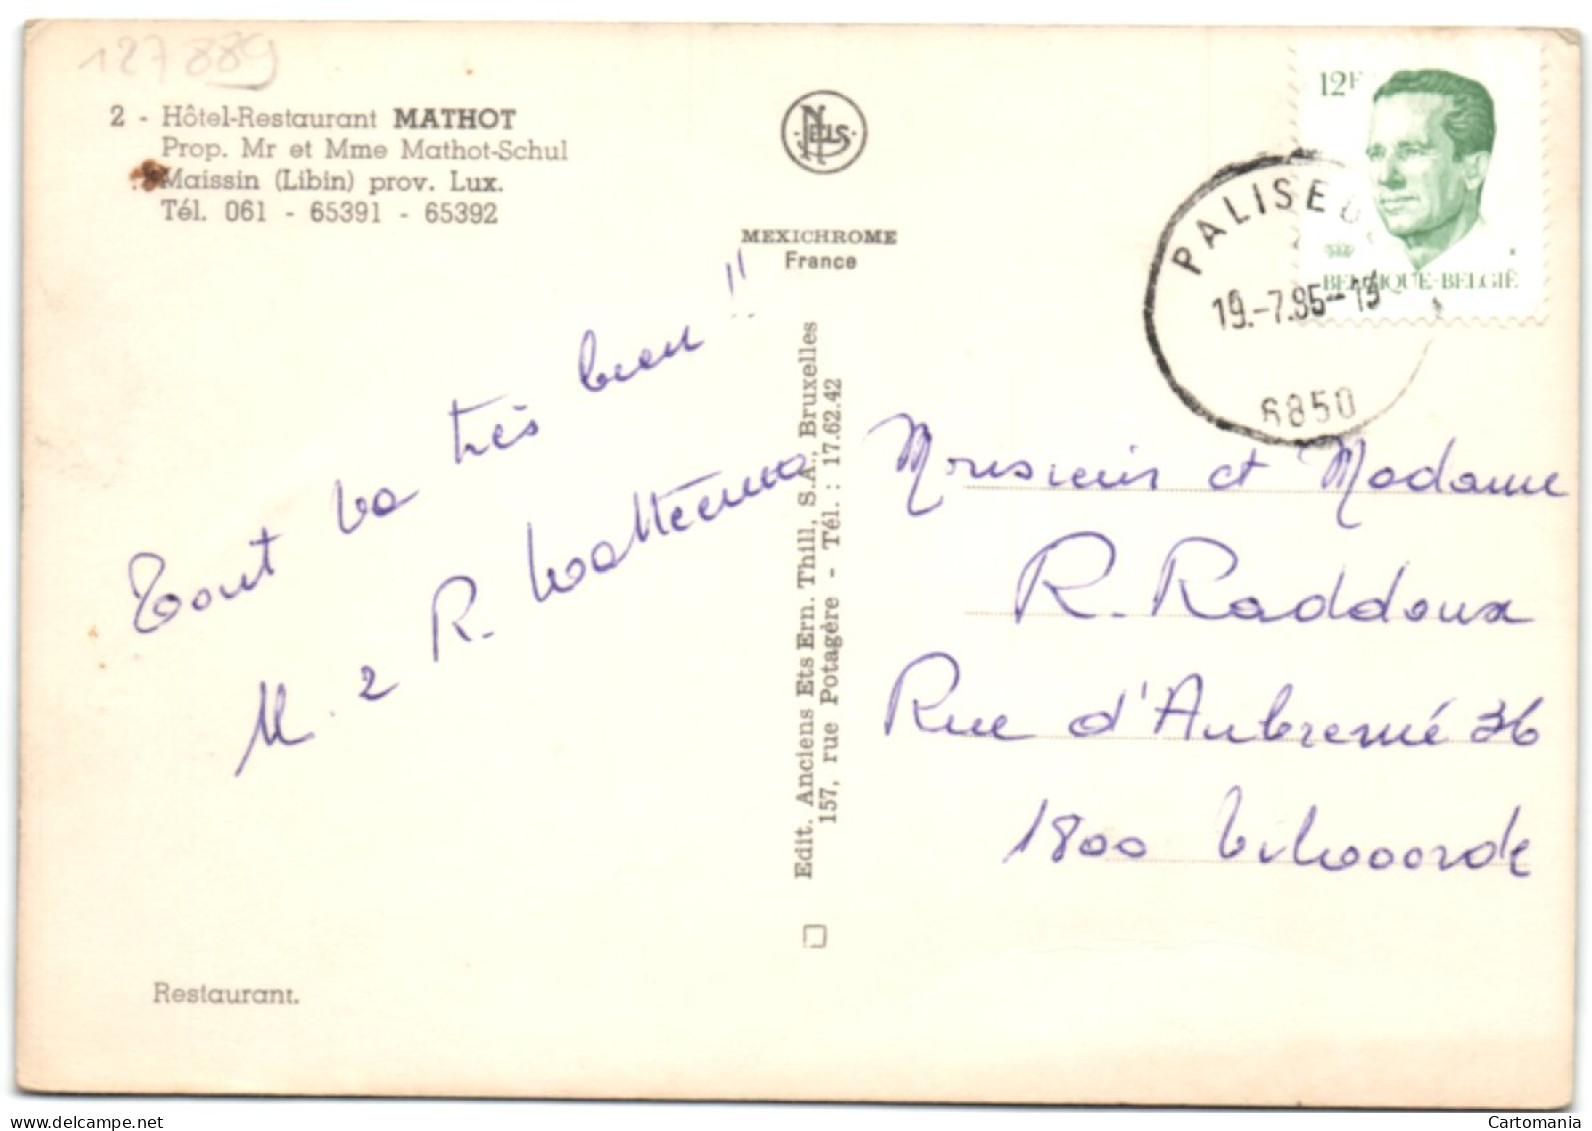 127889
2 - Hôtel-Restaurant MATHOT
Prop. Mr et Mme Mathot-Schul
Maissin (Libin) prov. Lux.
Tél. 061 - 65391 - 65392
NELS
MEXICHROME
France
12F
BELGIQUE-BELGIË
PALISEU
19.-7.85-15
6850
Tout va très bien !!
M. 2 R.
Edit. Anciens Ets Ern. Thill, S.A., Bruxelles
157, rue Potagère - Tél. : 17.62.42
Monsieur et Madame
R. Raddoux
Rue d'Aubremé 36
1800 Vilvoorde
Restaurant.
Cartomania